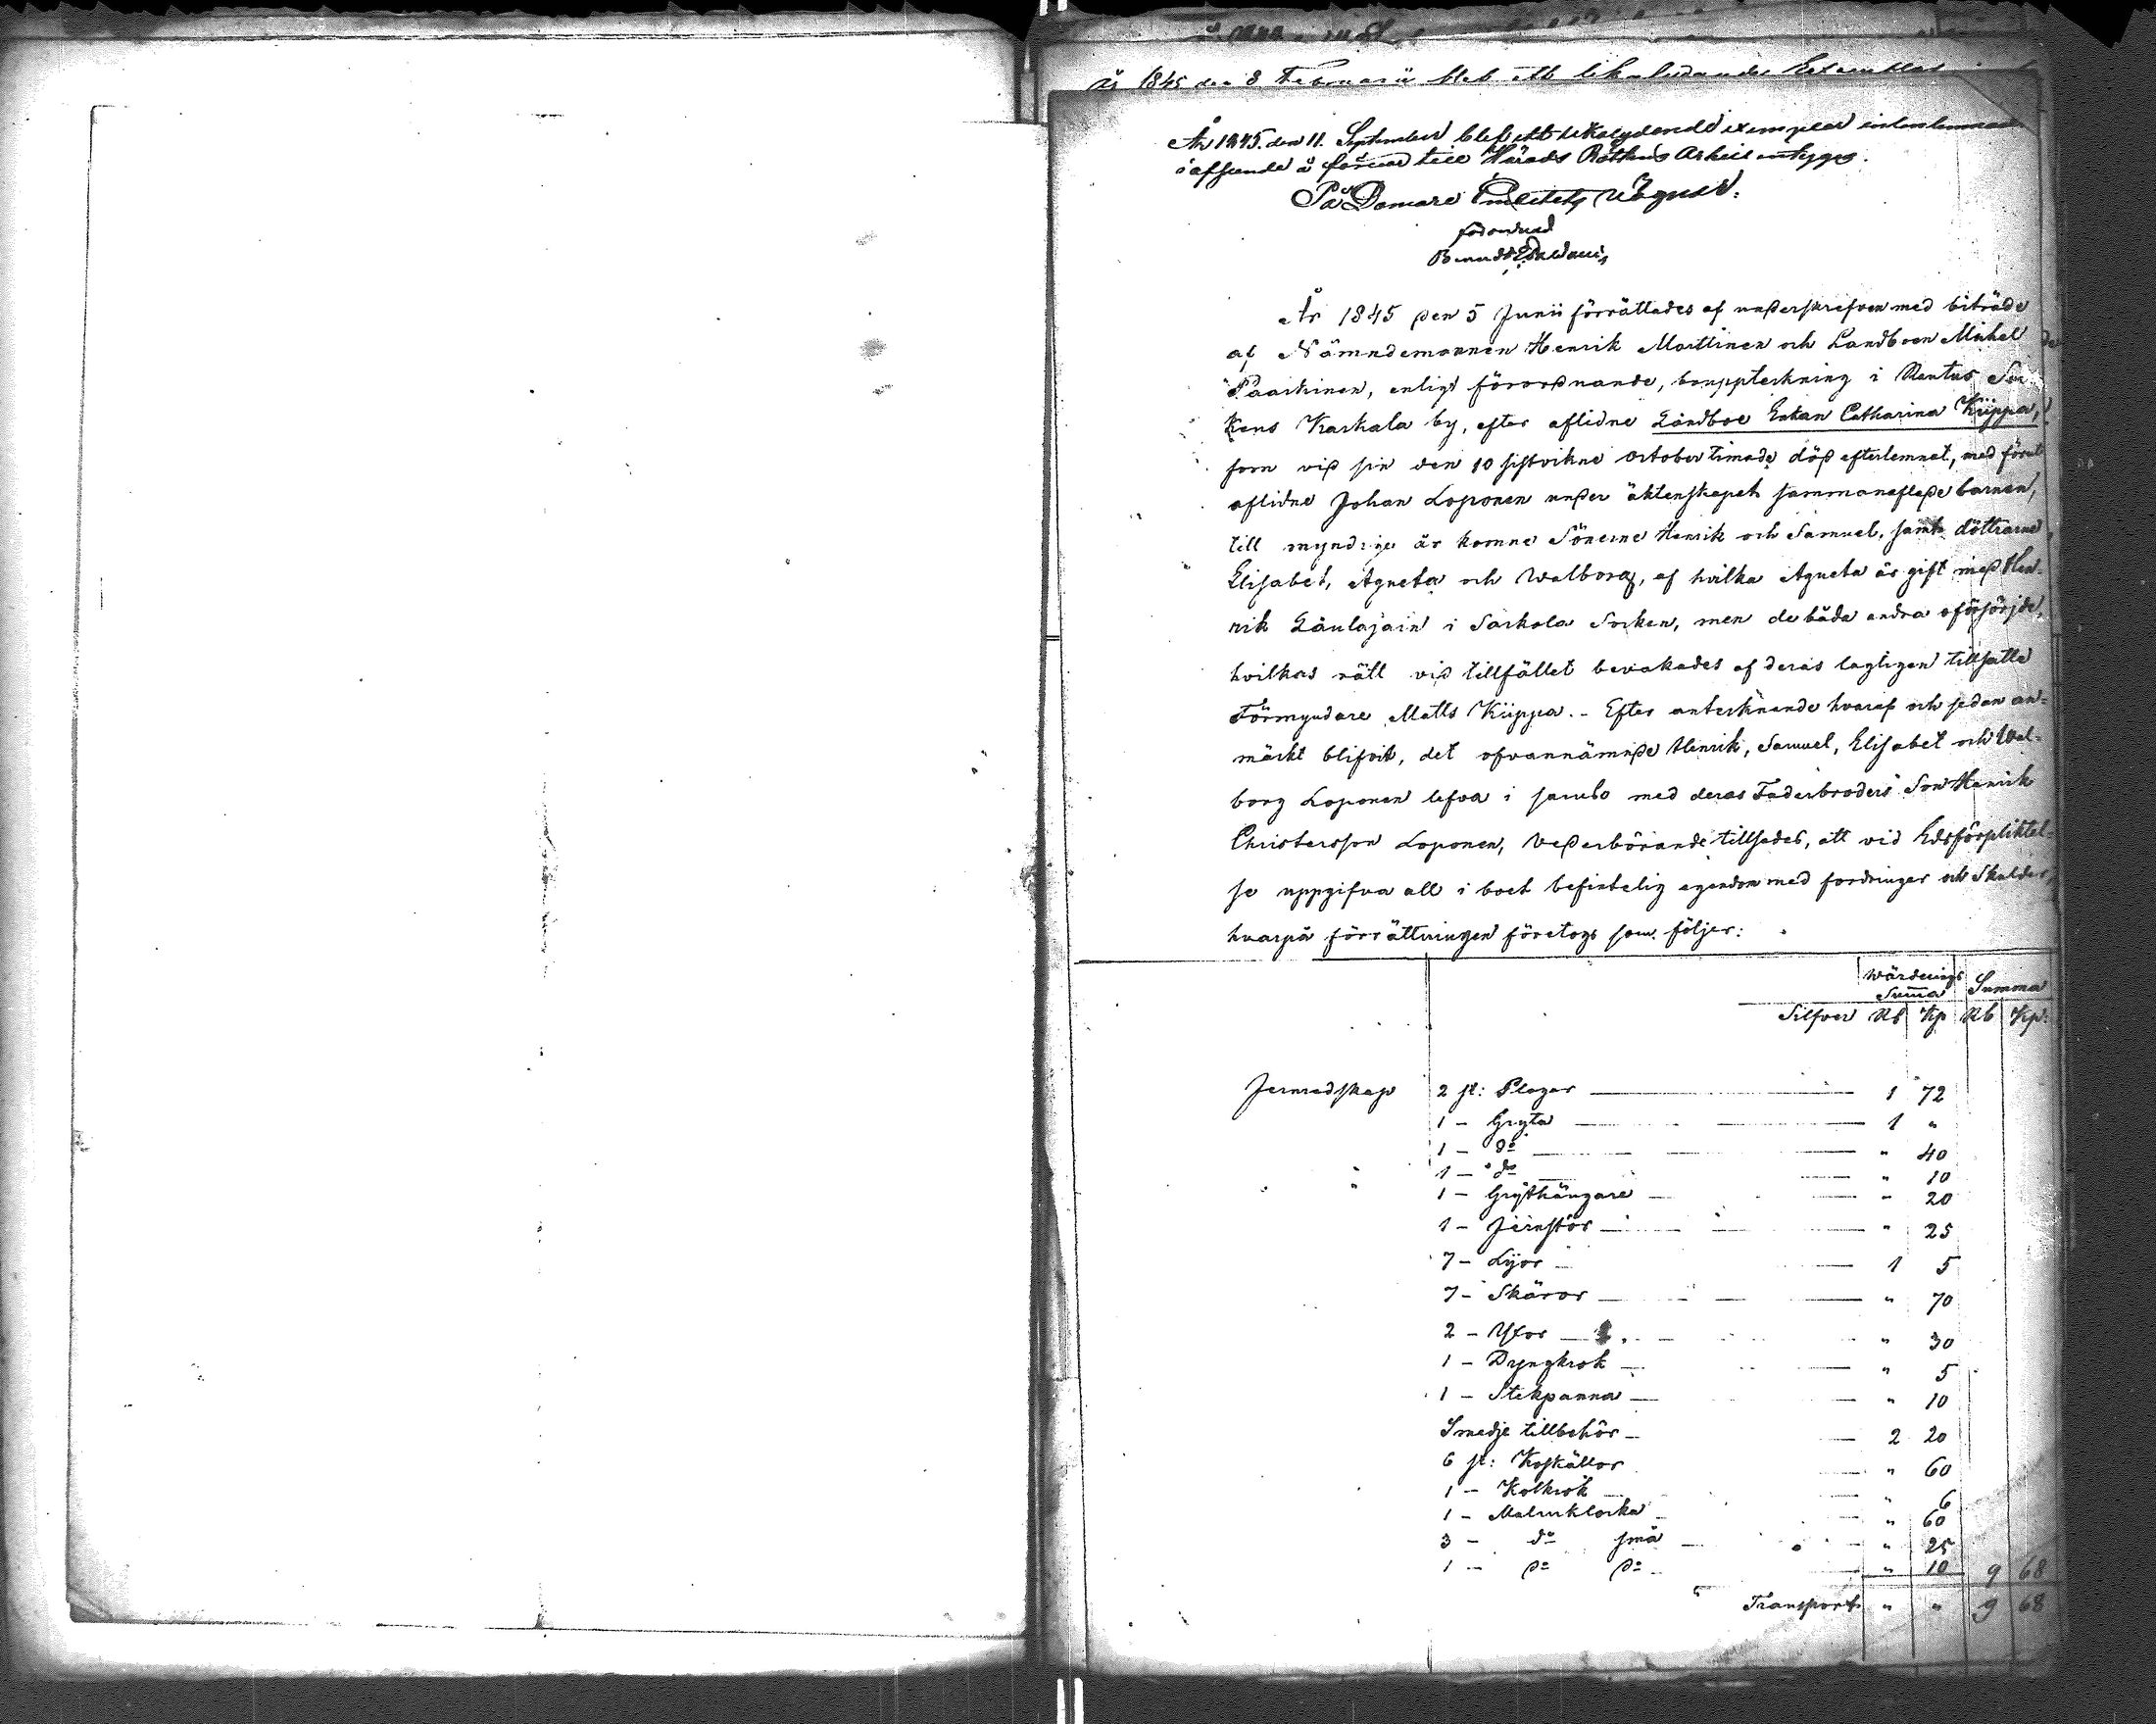 År 1845 den 8 Februarii blef ett likaludande Exemplar
År 1845. den 11. September blef ett likalydande exemplar inlemnadt
i afseende å förvar till Härads Rättens Arkiv intygas.
På Domare Embetets Vägnar:
förordnad
År 1845 den 5 Junii förrättades af underskrefven med biträde
af Nämndemannen Henrik Marttinen och Landboen Mickel
Paarkinen, enligt förordnande, bouppteckning i Rautus Soc-
kens Karkala by, efter aflidne Landboe Enkan Catharina Kiippa,
som vid sin den 10 sistvikne October timade död efterlemnat, med förut
aflidne Johan Loponen under äktenskapet sammanaflade barnen,
till myndiga år komne Sönerne Henrik och Samuel, samt döttrarne
Elisabet, Agneta och Walborg, af hvilka Agneta är gift med Hen-
rik Laulajain i Sackola Socken, men de båda andra oförsörjde,
hvilkas rätt vid tillfället bevakades af deras lagligen tillsatte
Förmyndare Matts Kiippa. - Efter antecknande hvaraf och sedan an-
märkt blifvit, det ofvannämnde Henrik, Samuel, Elisabet och Wal-
borg Loponen lefva i sambo med deras Faderbroders Son Henrik
Christersson Loponen, vederbörande tillsades, att vid Edsförpliktel-
se uppgifva all i boet befintelig egendom med fordringar och Skulder,
hvarpå förrättningen företogs som följer:
Wärderings Summa
Summa
Silfver Rb Kp Rb Kp:
Jernredskap 2 st: Plogar 1 72
1 - Gryta 1 "
1 - do " 40
1 - do " 10
1 - Grythängare " 20
1 - Jernstör " 25
7 - Lijor 1 5
7 - Skäror " 70
2 - Yxor " 30
1 - Dyngkrok " 5
1 - Stekpanna " 10
Smedje tillbehör 2 20
6 st: Koskällor " 60
1 - Kolkrok " 6
1 - Malmklocka " 60
3 - do små " 25
1 - do do " 10 9 68
Transport " " 9 68